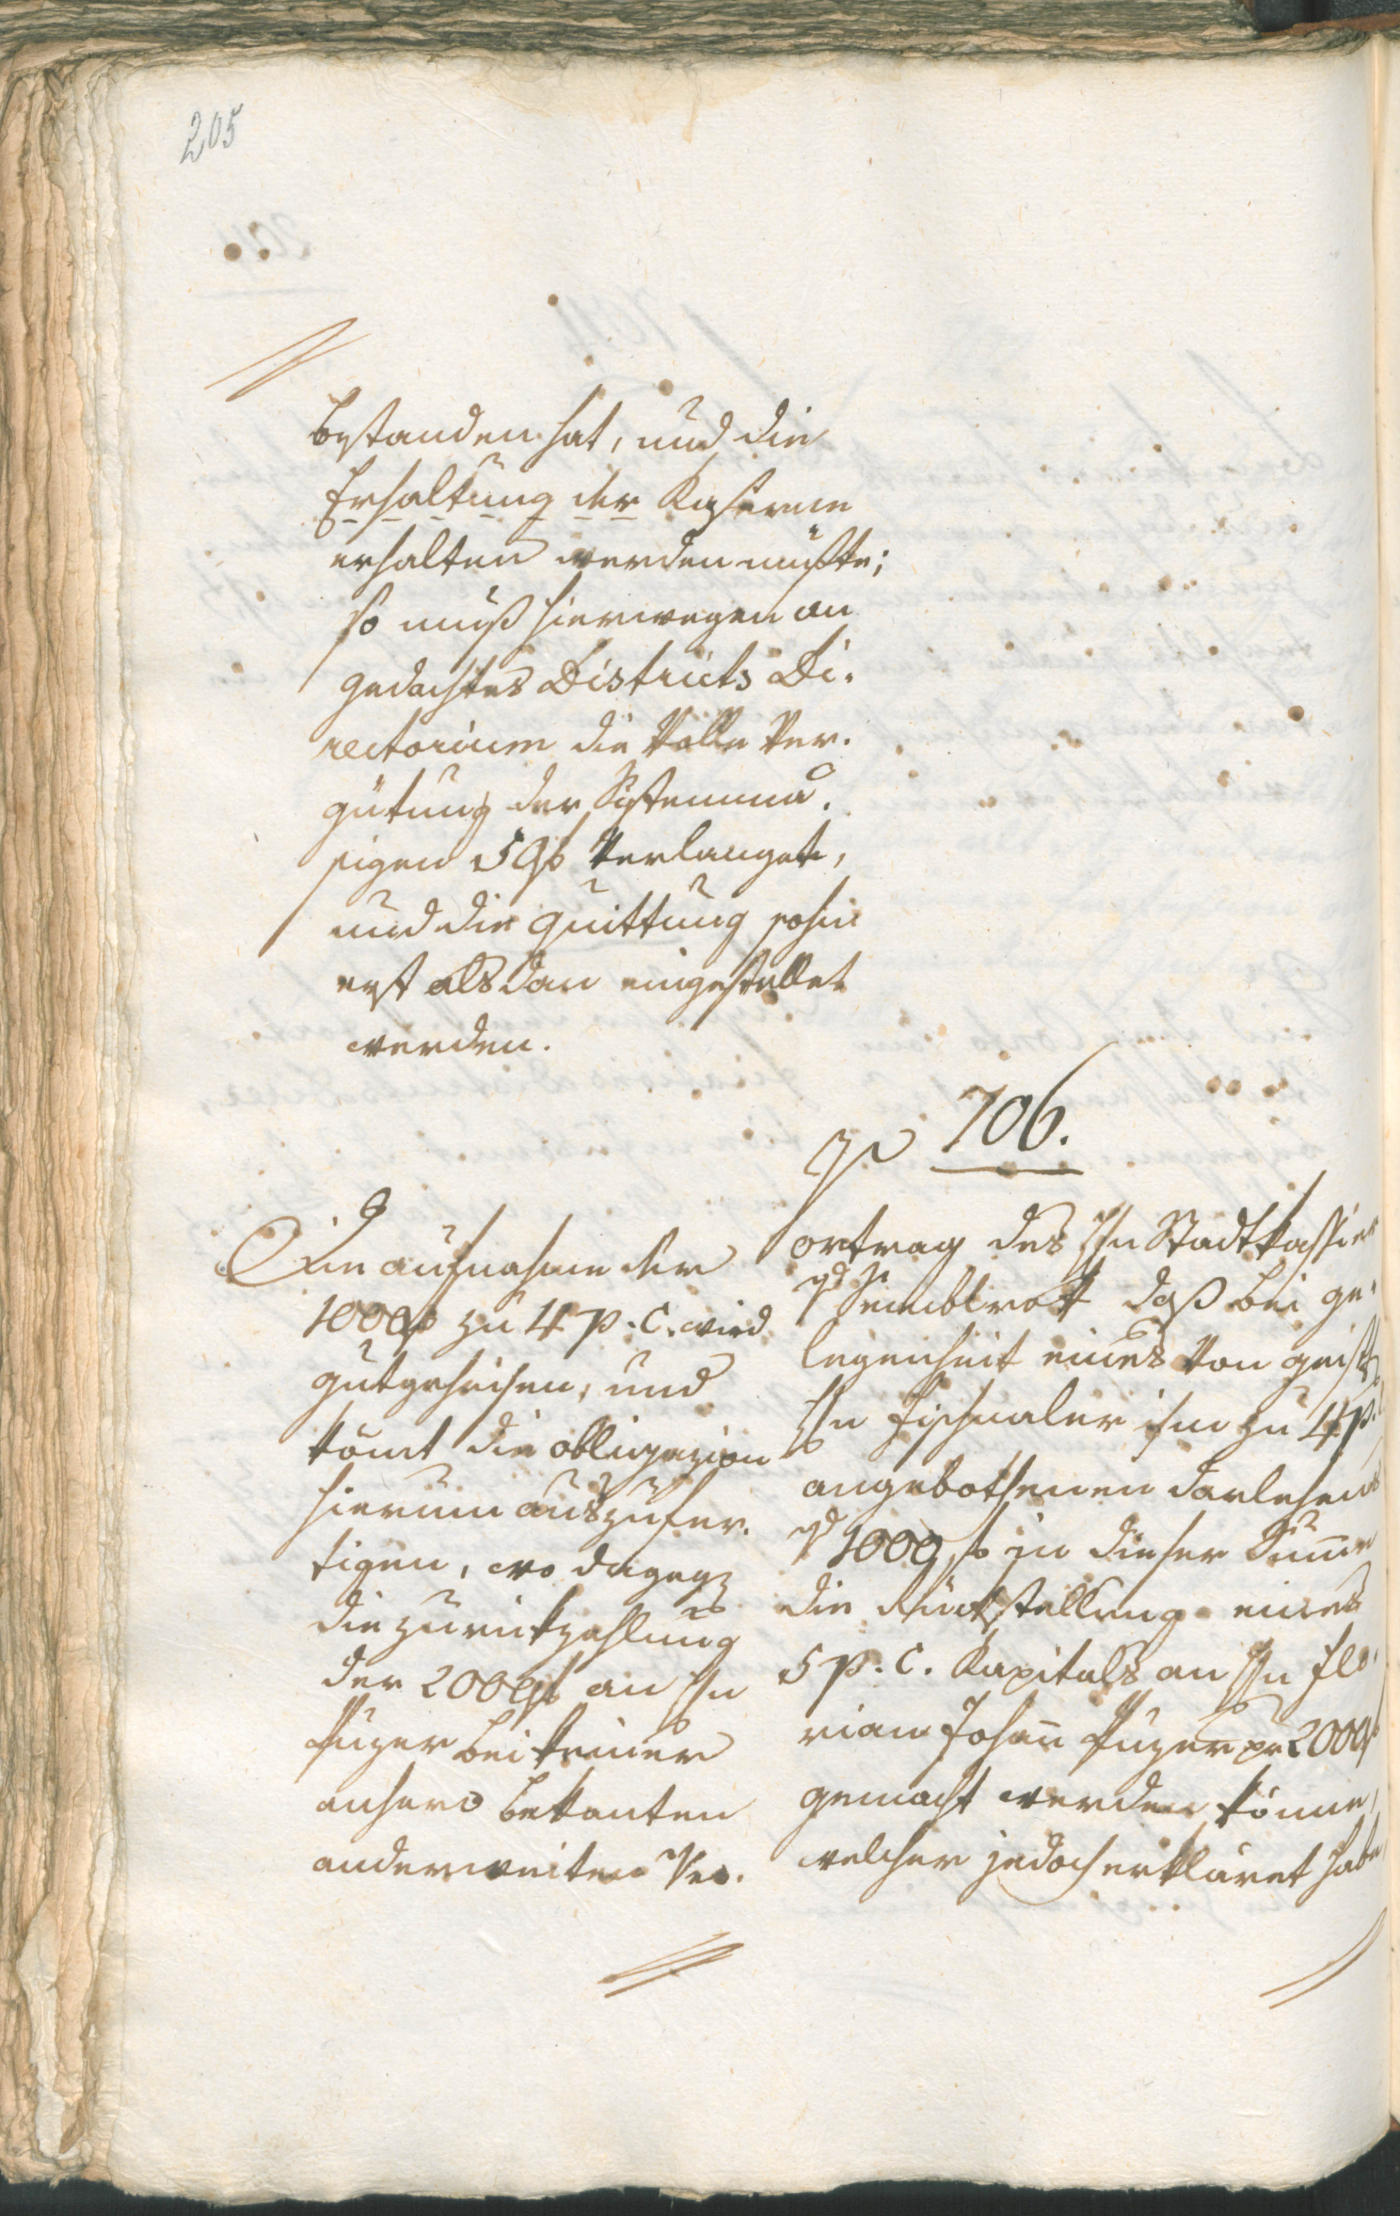 205
bestanden hat, und die
Erhaltung der Kaserne
erhalten werden müßte;
so muß hierwegen an
gedachtes Districts Di-
rectorium die Volle Ver-
gütung der Sistemmä-
sigen 5 f Verlanget,
und die Quittung sohin
erst alsdan eingestellet
werden.
706.
Die aufnahme der
1000 f zu 4 p. C. wird
gutgeheisen, und
kömt die obligazion
hierum auszufer-
tigen, wo dagegen
die zurükzahlung
der 2000 f an Hn
Puzer bei keiner
anhero bekanten
anderweiten Ver-
Vortrag des Hn Stadtkassier
v Sembler daß bei ge-
legenheit eines von geistl
Hn Fischnaler ihm zu 4 p. C
angebothenen darlehens
1000 f in dieser Summe
die Rückstellung eines
5 p. C. Kapitals an Hn Flo-
rian Johan Puzer pr 2000 f
gemacht werden könne,
welcher jedoch erkläret habe